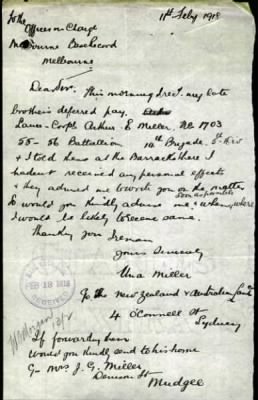 11th Feby 1918
To the
Officer in Charge
Melbourne Base Record
Melbourne
Dear Sir. This morning I recd. my late
brothers deferred pay.
Lance-Corpl Arthur E Miller, No 1703
55-56 Battalion 14th Brigade, 5th
& I told them at the Barracks there I
hadent received any personal effects
& they advised me to write you on the matter
So would you kindly advise me, & when, where
I would be likely to receive same.
Thanking you I remain
Yours Sincerely
Una Miller
C/o the New Zealand & Australian Land Co
4 O'Connell St
Sydney
FEB 13 1918
If forwarding them
Would you kindly send to his home
C/- Mrs J. G. Miller
Denison St
Mudgee